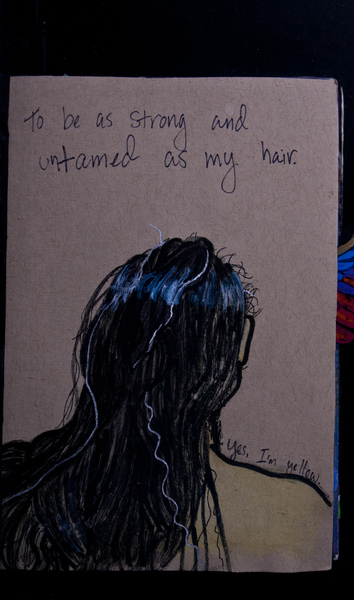 to be as strong and
untamed as my hair.
yes, I'm yellow.